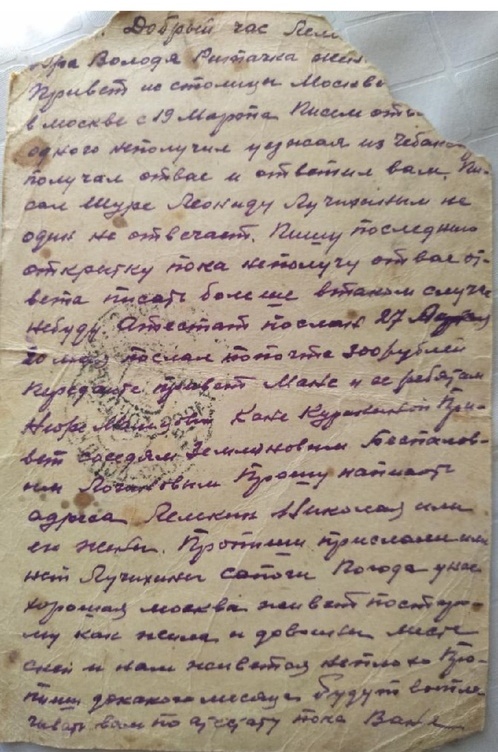 Добрый час Лем
ура Володя Риточка жен
Привет из столицы Москвы
в москве с 19 Марта Писем отва
одного неполучил уезжая из Чебан
получал отвас и ответил вам. Пи-
сал Шуре Леониду Лучихиным не
один не отвечает. Пишу последнию
открытку пока неполучу отвас от-
вета писать больше втаком случае
небуду Атестат послан 27 Апреля
20 мая послал попочте 300 рублей
Передайте привет Мане и ее ребятам
Нюре Кате При-
вет соседям Земляновым Беспалов-
ым Логиновым Прошу напишите
адреса Лемкин Николая или
ею жены. Пропиши прислали или
нет Лучихины сапоги Погода унас
хорошая москва живет постаро-
му как жила и довойны
и нам живется неплохо Про-
пиши докакого месяца будут выпла-
чивать вам по атестату пока Ваня